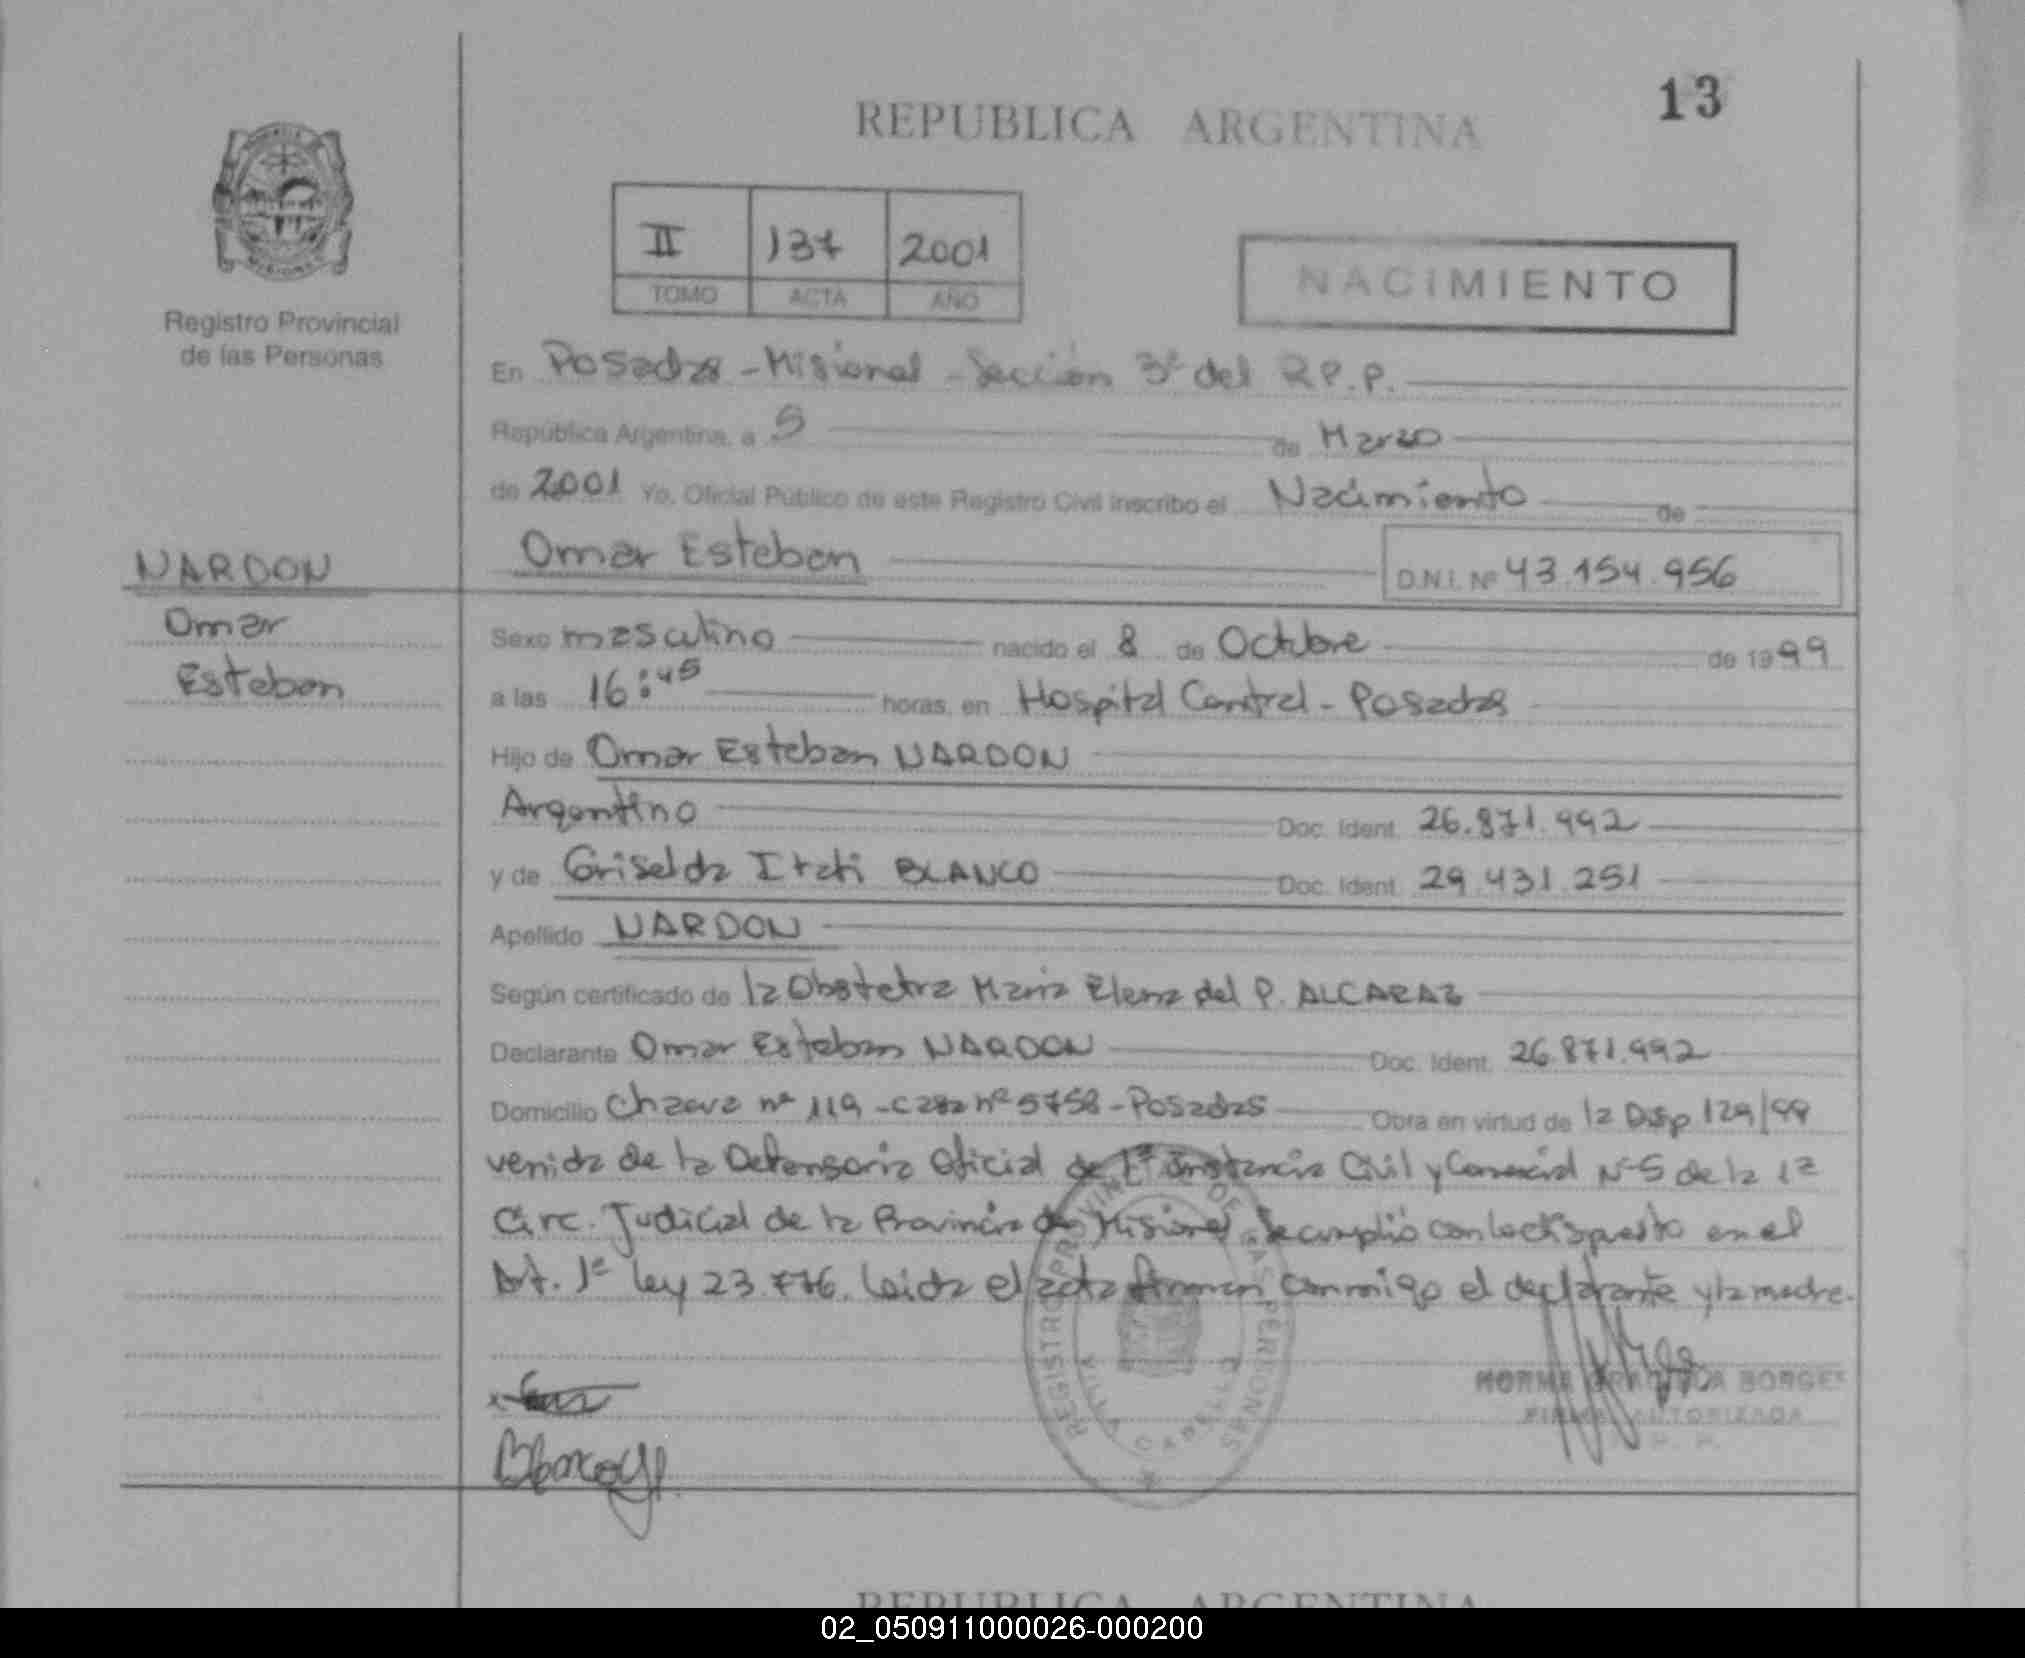 13
REPUBLICA ARGENTINA
II 137 2001
TOMO ACTA AÑO
NACIMIENTO
Registro Provincial
de las Personas
En Posadas - Misiones - Sección 3ª del R.P.P.
República Argentina, a 5 de Marzo
de 2001 Yo, Oficial Público de este Registro Civil inscribo el Nacimiento de
Omar Esteban D.N.I. Nº 43.154.956
NARDON
Omar
Esteban
Sexo masculino nacido el 8 de Octubre de 1999
a las 16:45 horas, en Hospital Central - Posadas
Hijo de Omar Esteban NARDON
Argentino Doc. Ident. 26.871.992
y de Griselda Itati BLANCO Doc. Ident. 29.431.251
Apellido NARDON
Según certificado de la Obstetra Maria Elena del P. ALCARAZ
Declarante Omar Esteban NARDON Doc. Ident. 26.871.992
Domicilio Chacra nº 119 - casa nº 5758 - Posadas Obra en virtud de la Disp 129/99
venida de la Defensoria Oficial de 1ª Instancia Civil y Comercial Nº 5 de la 1ª
Circ. Judicial de la Provincia de Misiones. Se cumplió con lo dispuesto en el
Art. 1º ley 23.776. Leida el acta firman conmigo el declarante y la madre.
REGISTRO PROVINCIAL DE LAS PERSONAS
VILLA CABELLO
NORMA GRACIELA BORGES
FIRMA AUTORIZADA
Blanco G.
REPUBLICA ARGENTINA
02_050911000026-000200